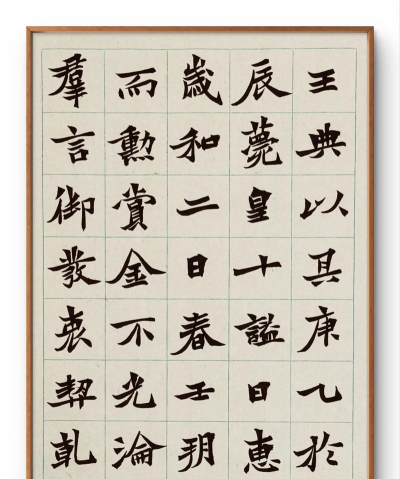 王典以具庚乙於
辰薨皇十謚日惠
歲和二日春壬
而勳賞金不光淪
羣言御發衷契乹